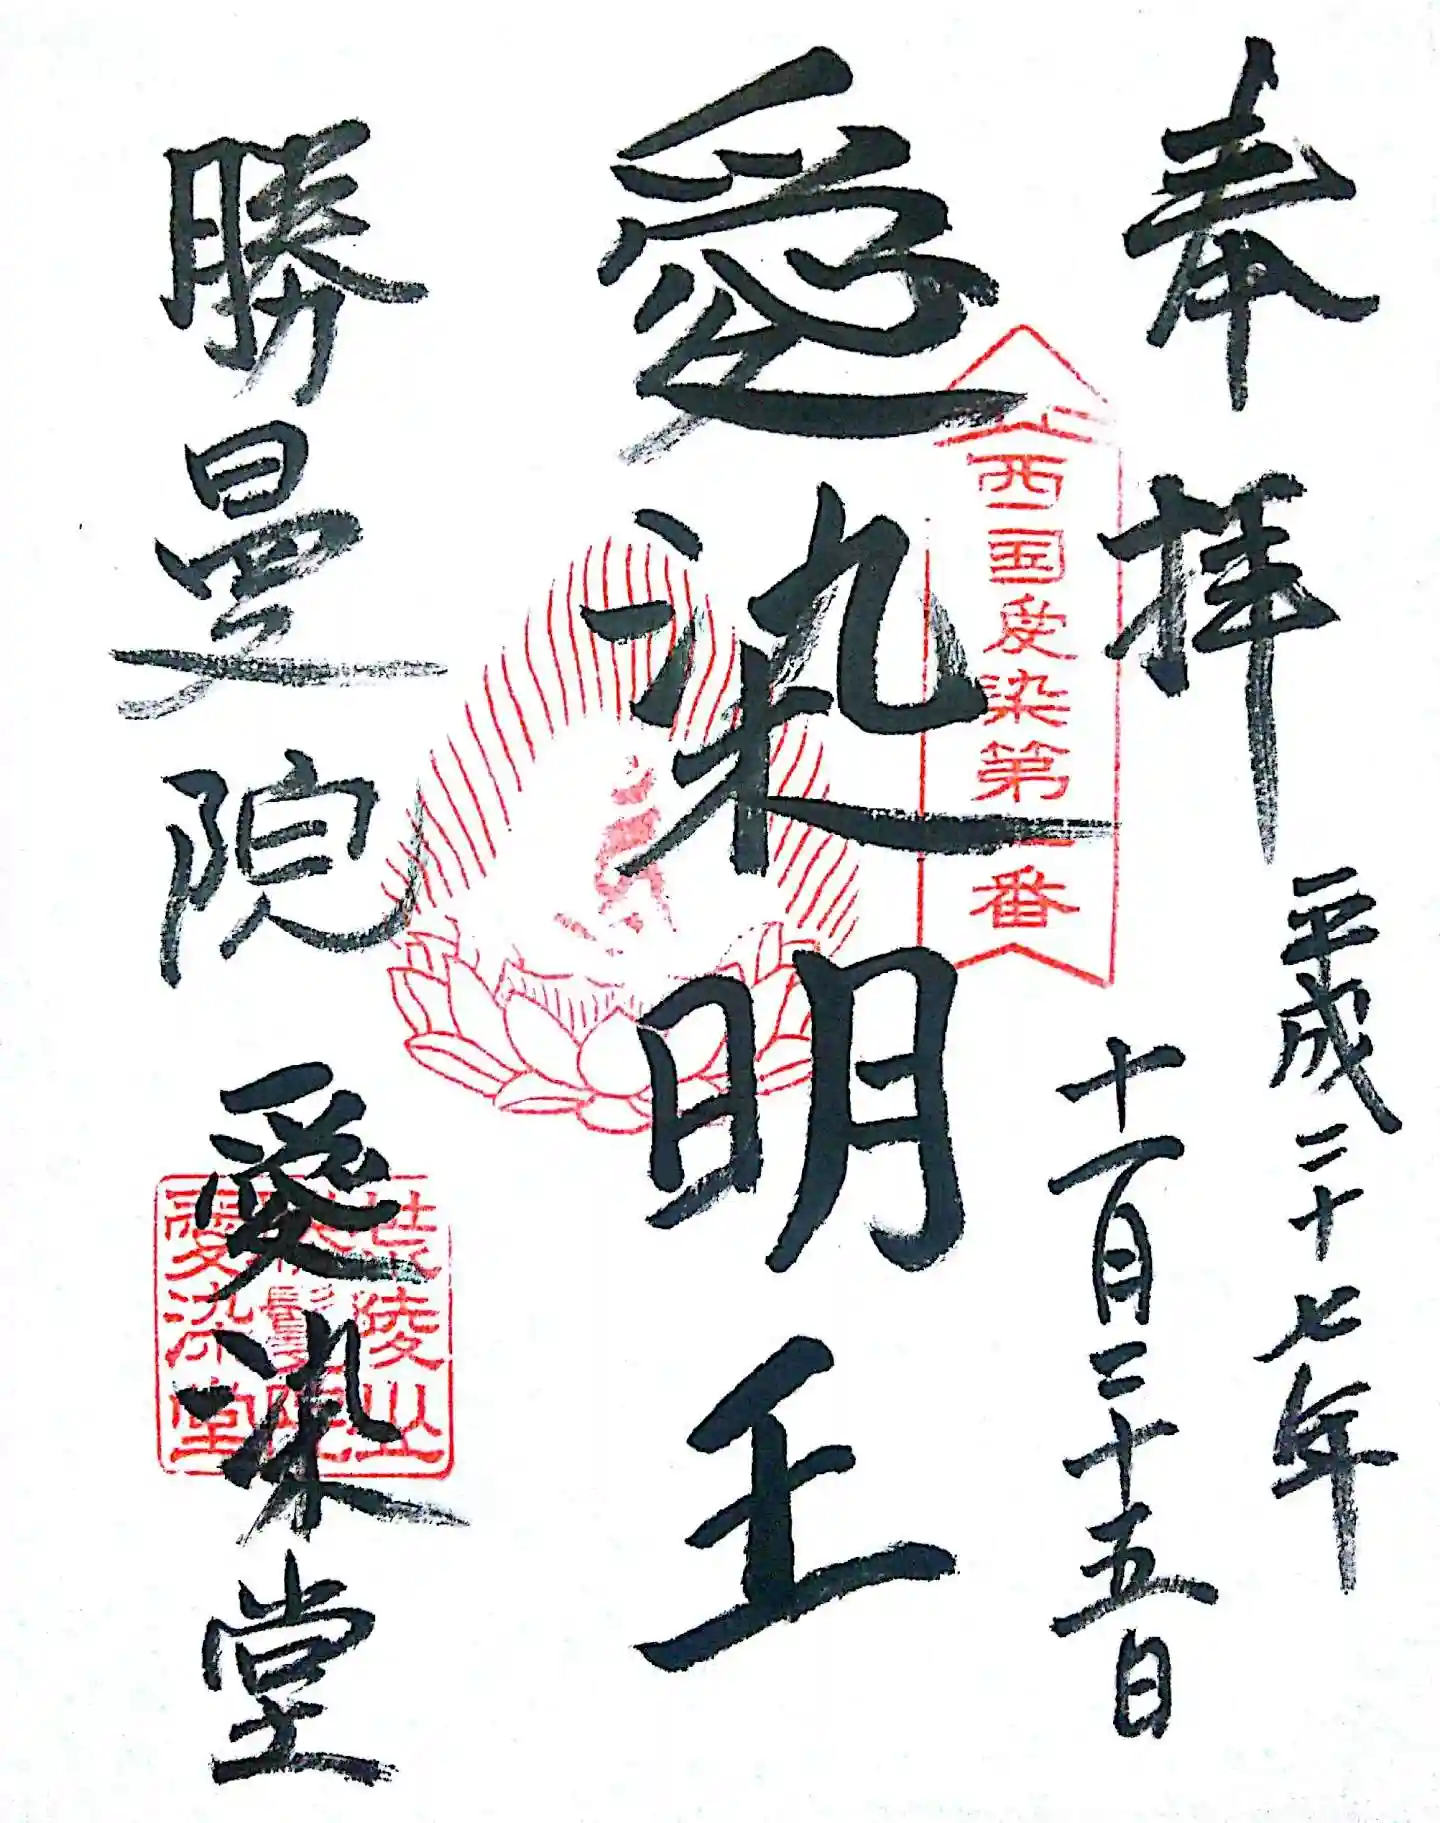 奉拝
平成二十七年
十一月二十五日
西国愛染第一番
愛染明王
勝曼院 愛染堂
荒陵山
勝鬘院
愛染堂